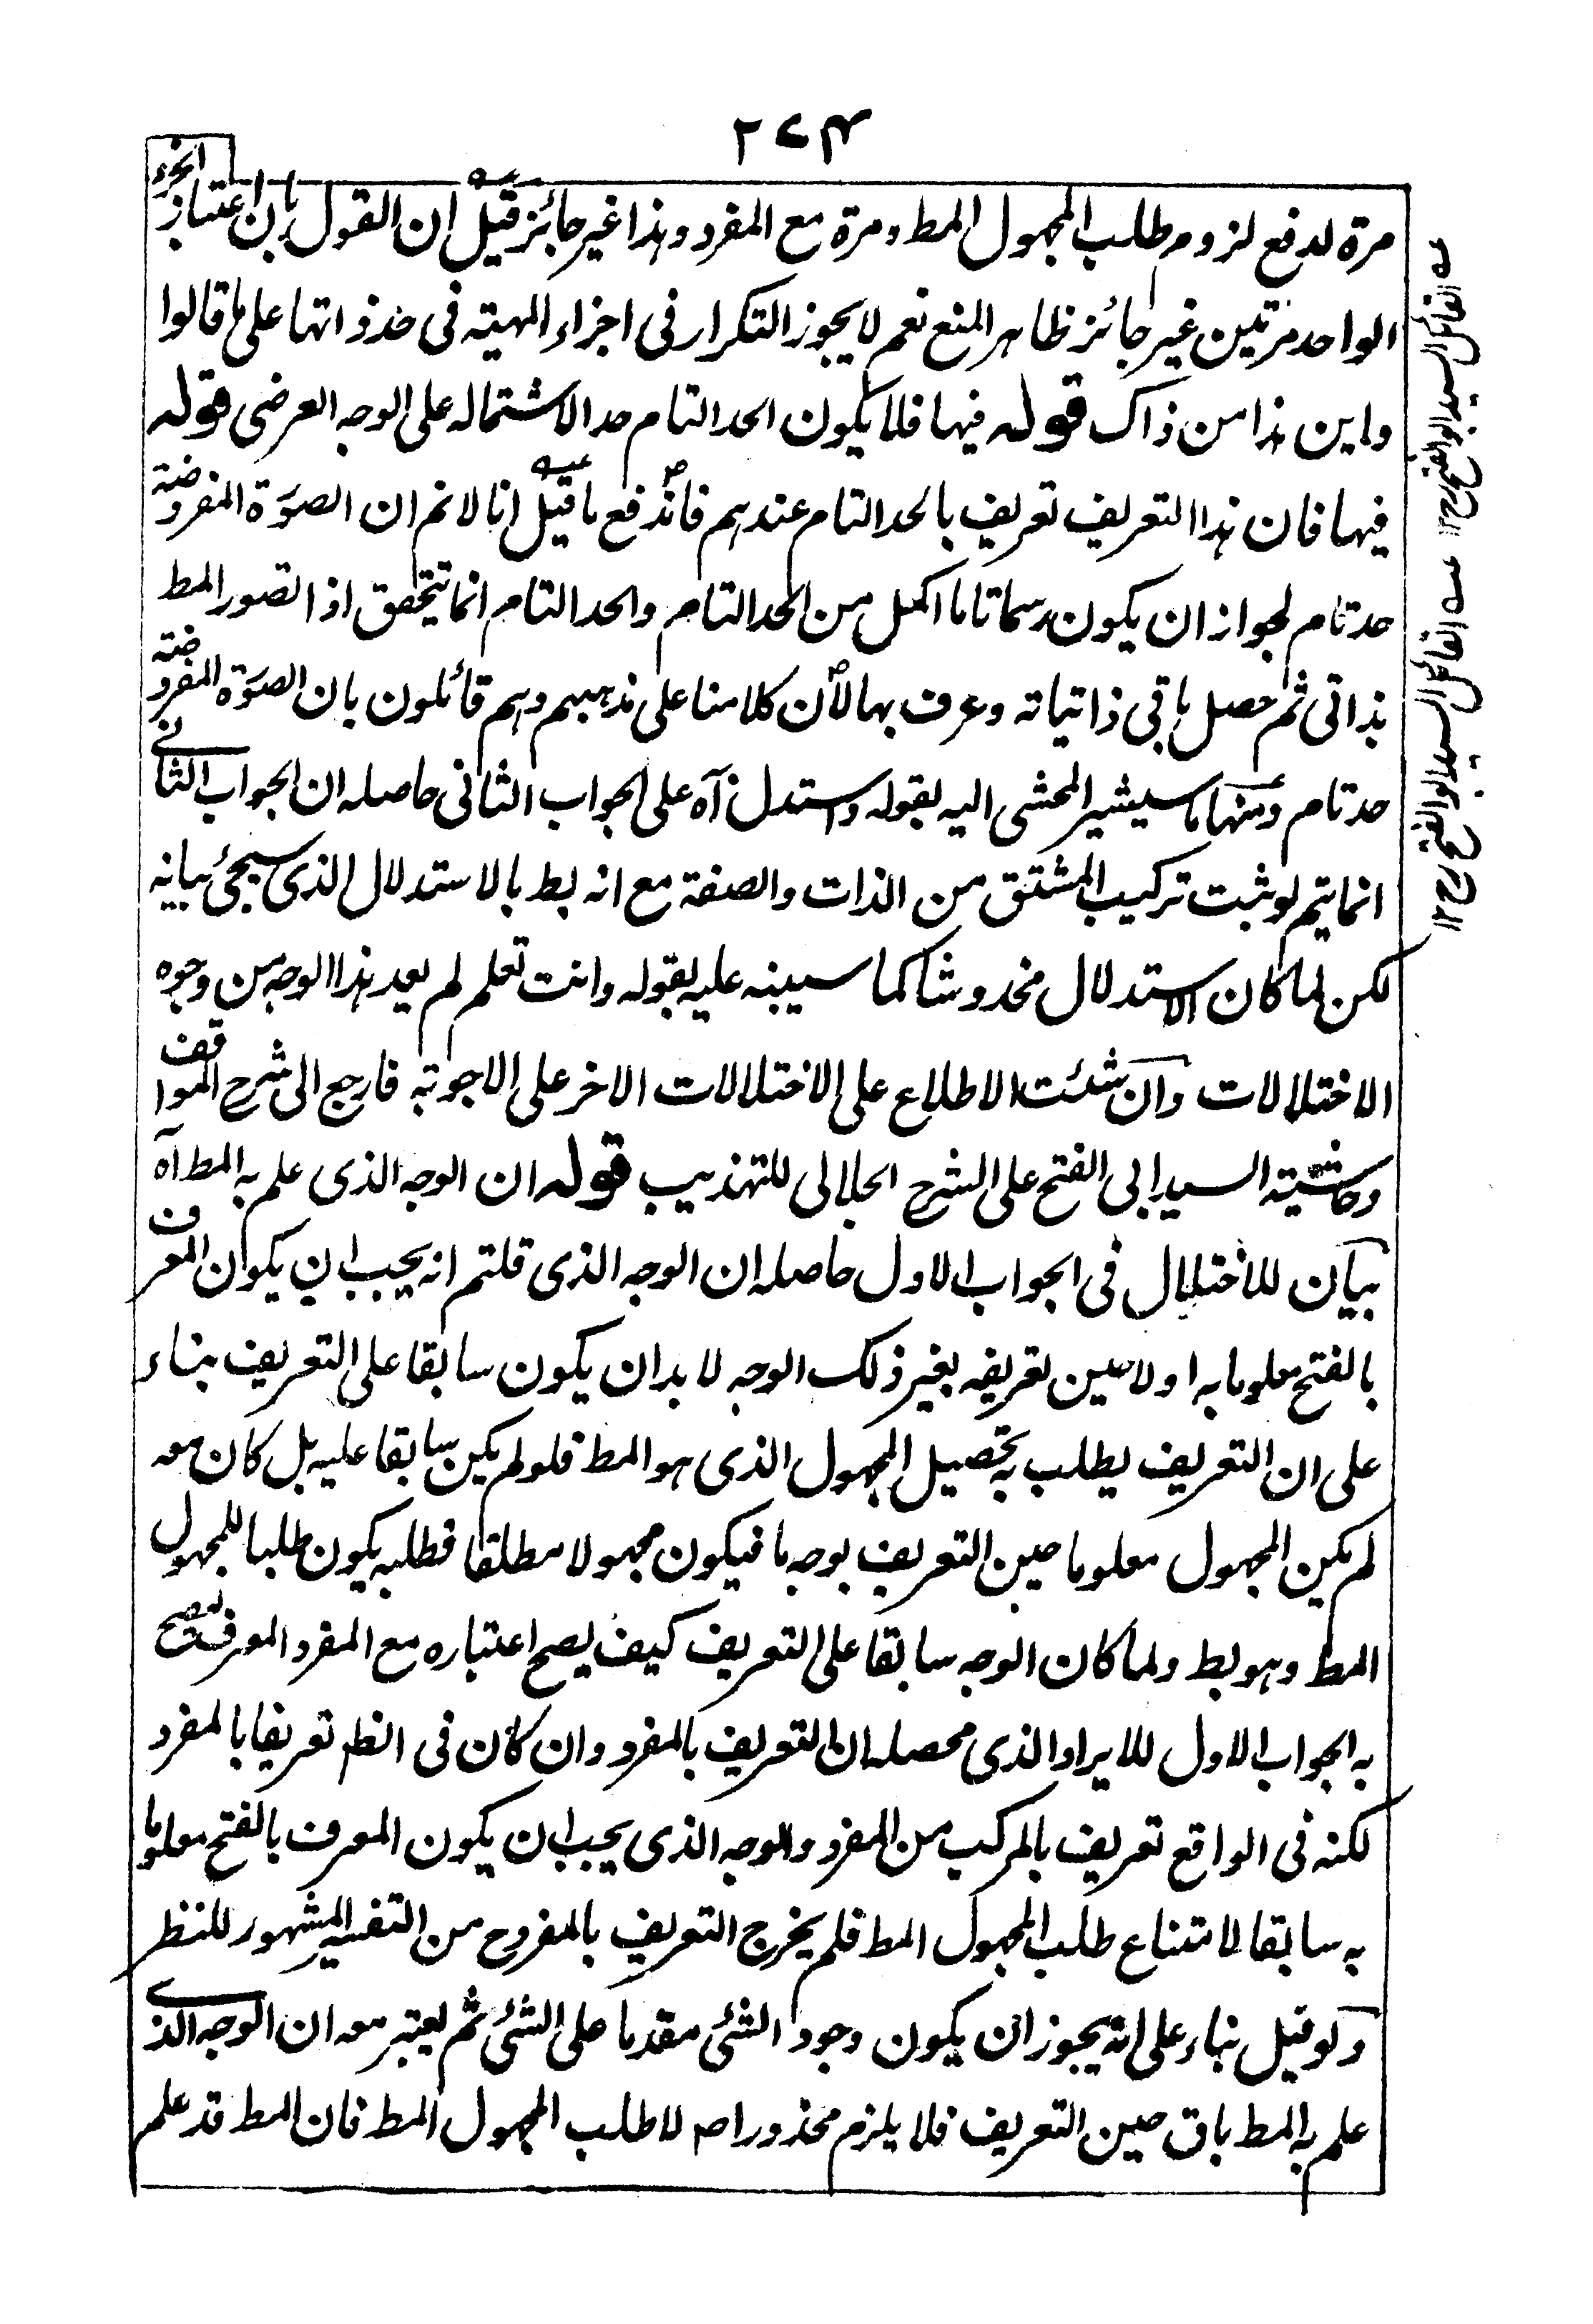 ٢٧٤
مرة لدفع لزوم طلب المجهول المط ومرة مع المفرد وهذا غير جائز قيل ان القول بان اعتبار الجزء
الواحد مرتين غير جائز ظاهر المنع نعم لا يجوز التكرار فى اجزاء المهية فى حد ذواتها على ما قالوا
واين هذا من ذاك قوله فيها فلا يكون الحد التام حدا لاشتماله على الوجه العرضى قوله
فيها فان هذا التعريف تعريف بالحد التام عندهم فاندفع ما قيل انا لا نم ان الصورة المفروضة
حد تام لجواز ان يكون رسما تاما اكمل من الحد التام والحد التام انما يتحقق اذا تصور المط
بذاتى ثم حصل باقى ذاتياته وعرف بها لان كلامنا على مذهبهم وهم قائلون بان الصورة المفروضة
حد تام ومنها ما سيشير المحشى اليه بقوله واستدل آه على الجواب الثانى حاصله ان الجواب الثانى
انما يتم لو ثبت تركيب المشتق من الذات والصفة مع انه بط بالاستدلال الذى سيجئ بيانه
لكن لما كان الاستدلال مخدوشا كما سيبنه عليه بقوله وانت تعلم لم يعد هذا الوجه من وجوه
الاختلالات وان شئت الاطلاع على الاختلالات الاخر على الاجوبة فارجع الى شرح المواقف
وحاشية السيد ابى الفتح على الشرح الجلالى للتهذيب قوله ان الوجه الذى علم به المط آه
بيان للاختلال فى الجواب الاول حاصله ان الوجه الذى قلتم انه يجب ان يكون المعرف
بالفتح معلوما به اولا حين تعريفه بغير ذلك الوجه لا بد ان يكون سابقا على التعريف بناء
على ان التعريف يطلب به تحصيل المجهول الذى هو المط فلو لم يكن سابقا عليه بل كان معه
لم يكن المجهول معلوما حين التعريف بوجه ما فيكون مجهولا مطلقا فطلبه يكون طلبا للمجهول
المط وهو بط ولما كان الوجه سابقا على التعريف كيف يصح اعتباره مع المفرد المعرف فتصح
به الجواب الاول للايراد الذى محصله ان التعريف بالمفرد وان كان فى الظ تعريفا بالمفرد
لكنه فى الواقع تعريف بالمركب من المفرد والوجه الذى يجب ان يكون المعرف بالفتح معلوما
به سابقا لامتناع طلب المجهول المط فلم يخرج التعريف بالمفرد ح من التفسير المشهور للنظر
ولو قيل بناء على انه يجوز ان يكون وجود الشئ مقدما على الشئ ثم يعتبر معه ان الوجه الذى
علم به المط باق حين التعريف فلا يلزم محذور اصلا لا طلب المجهول المط فان المط قد علم
عه القائل السيد ابو الفتح رح ١٢
عه القائل السيد ابو الفتح رح ١٢